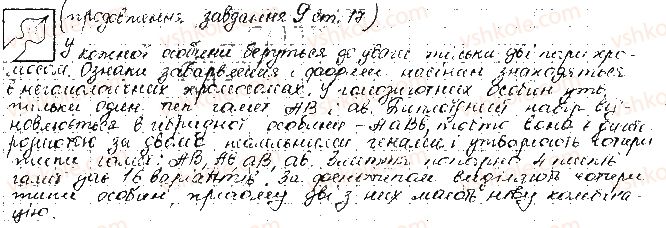 (продовження завдання 9 ст. 17)
У кожної особини беруться до уваги тільки дві пари хро-
мосом. Ознаки забарвлення і форми насіння знаходяться
в негомологічних хромосомах. У гомозиготних особин утв.
тільки один тип гамет АВ і ав. Диплоїдний набір від-
новлюється в гібридної особини - АаВb, тобто вона є гете-
розиготою за двома алельними генами і утворюють чотири
типи гамет: АВ, Аb аВ, ав. Злиття попарно 4 типів
гамет дає 16 варіантів. За фенотипом виділяють чотири
типи особин, причому дві з них мають нову комбіна-
цію.